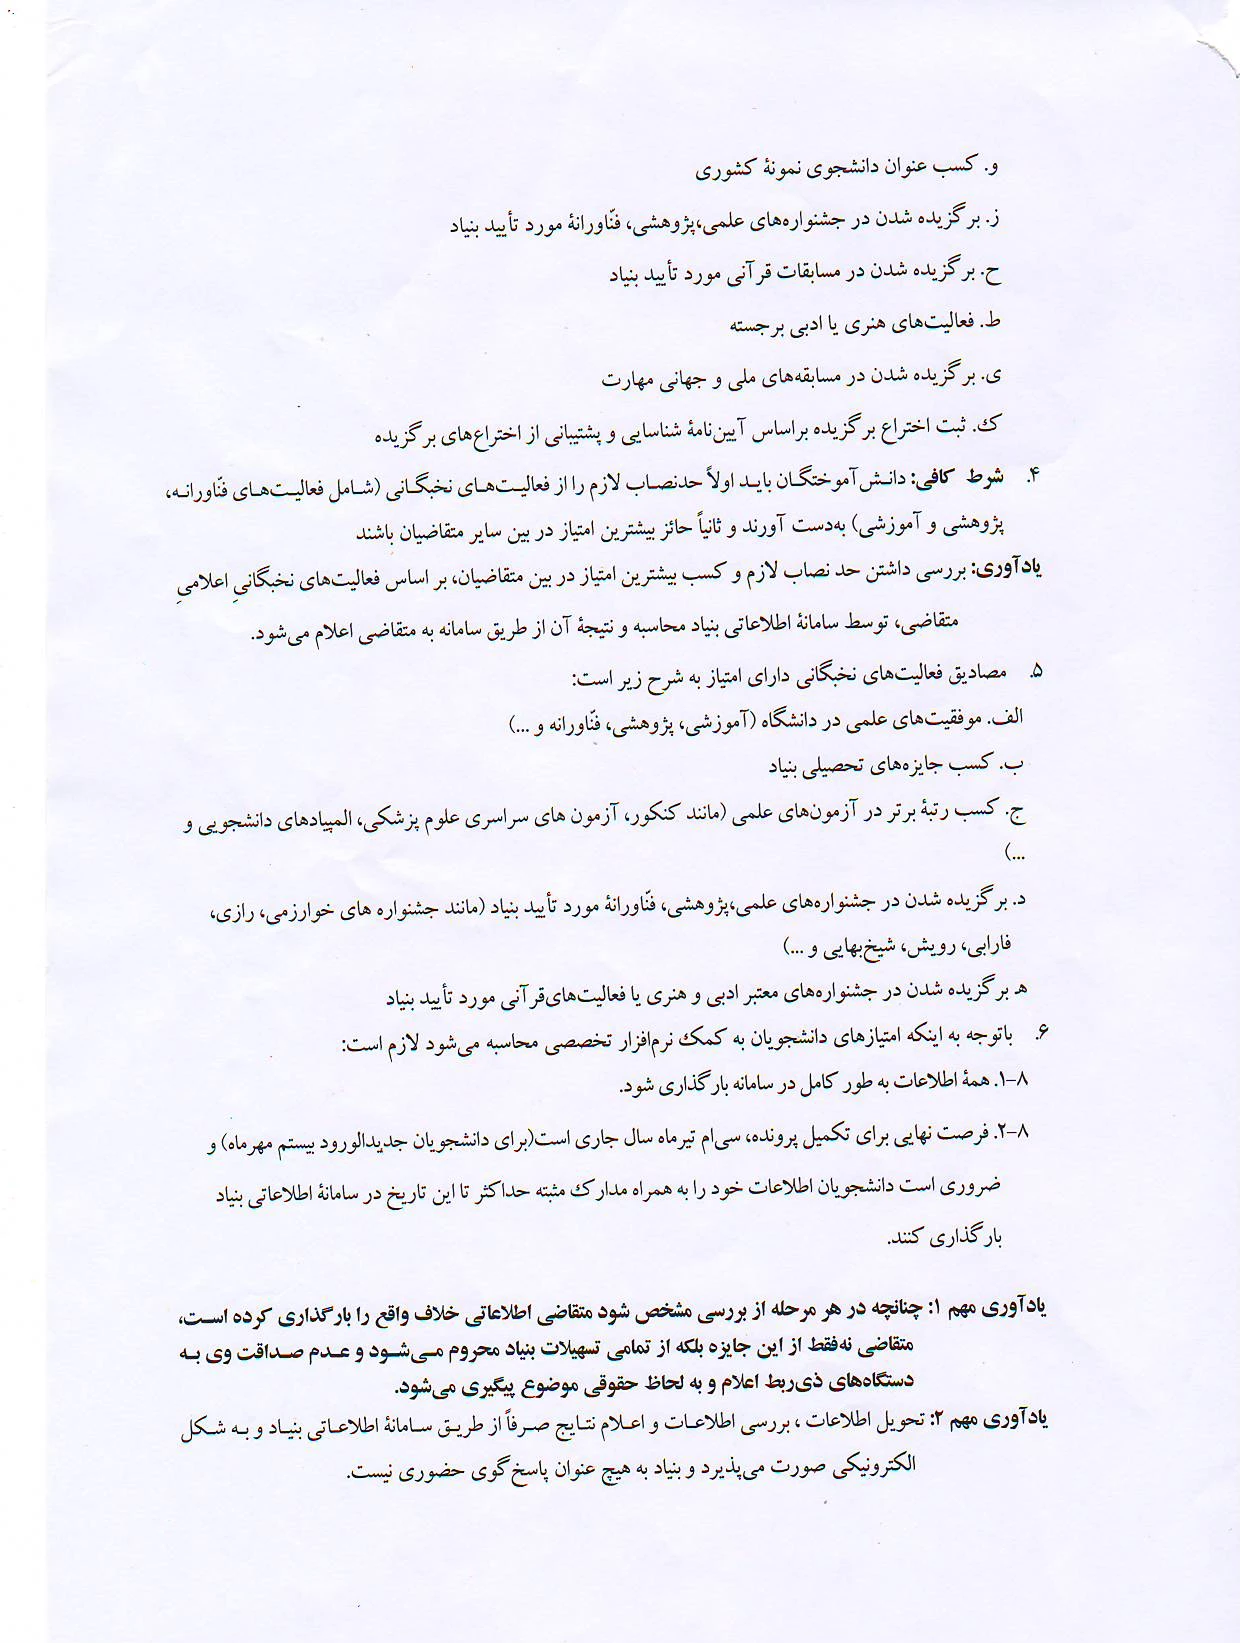 و. کسب عنوان دانشجوی نمونهٔ کشوری
ز. برگزیده شدن در جشنواره‌های علمی،پژوهشی، فنّاورانهٔ مورد تأیید بنیاد
ح. برگزیده شدن در مسابقات قرآنی مورد تأیید بنیاد
ط. فعالیت‌های هنری یا ادبی برجسته
ی. برگزیده شدن در مسابقه‌های ملی و جهانی مهارت
ک. ثبت اختراع برگزیده براساس آیین‌نامهٔ شناسایی و پشتیبانی از اختراع‌های برگزیده
۴. شرط کافی: دانش‌آموختگان باید اولاً حدنصاب لازم را از فعالیت‌های نخبگانی (شامل فعالیت‌های فنّاورانه،
پژوهشی و آموزشی) به‌دست آورند و ثانیاً حائز بیشترین امتیاز در بین سایر متقاضیان باشند
یادآوری: بررسی داشتن حد نصاب لازم و کسب بیشترین امتیاز در بین متقاضیان، بر اساس فعالیت‌های نخبگانیِ اعلامیِ
متقاضی، توسط سامانهٔ اطلاعاتی بنیاد محاسبه و نتیجهٔ آن از طریق سامانه به متقاضی اعلام می‌شود.
۵. مصادیق فعالیت‌های نخبگانی دارای امتیاز به شرح زیر است:
الف. موفقیت‌های علمی در دانشگاه (آموزشی، پژوهشی، فنّاورانه و ...)
ب. کسب جایزه‌های تحصیلی بنیاد
ج. کسب رتبهٔ برتر در آزمون‌های علمی (مانند کنکور، آزمون های سراسری علوم پزشکی، المپیادهای دانشجویی و
...)
د. برگزیده شدن در جشنواره‌های علمی،پژوهشی، فنّاورانهٔ مورد تأیید بنیاد (مانند جشنواره های خوارزمی، رازی،
فارابی، رویش، شیخ‌بهایی و ...)
هـ برگزیده شدن در جشنواره‌های معتبر ادبی و هنری یا فعالیت‌های‌قرآنی مورد تأیید بنیاد
۶. باتوجه به اینکه امتیازهای دانشجویان به کمک نرم‌افزار تخصصی محاسبه می‌شود لازم است:
۸-۱. همهٔ اطلاعات به طور کامل در سامانه بارگذاری شود.
۸-۲. فرصت نهایی برای تکمیل پرونده، سی‌ام تیرماه سال جاری است(برای دانشجویان جدیدالورود بیستم مهرماه) و
ضروری است دانشجویان اطلاعات خود را به همراه مدارک مثبته حداکثر تا این تاریخ در سامانهٔ اطلاعاتی بنیاد
بارگذاری کنند.
یادآوری مهم ۱: چنانچه در هر مرحله از بررسی مشخص شود متقاضی اطلاعاتی خلاف واقع را بارگذاری کرده است،
متقاضی نه‌فقط از این جایزه بلکه از تمامی تسهیلات بنیاد محروم می‌شود و عدم صداقت وی به
دستگاه‌های ذی‌ربط اعلام و به لحاظ حقوقی موضوع پیگیری می‌شود.
یادآوری مهم ۲: تحویل اطلاعات ، بررسی اطلاعات و اعلام نتایج صرفاً از طریق سامانهٔ اطلاعاتی بنیاد و به شکل
الکترونیکی صورت می‌پذیرد و بنیاد به هیچ عنوان پاسخ‌گوی حضوری نیست.